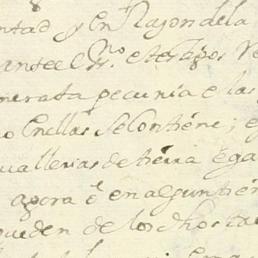 ntad y en Razon de la
ante el Sno. e testigos Ve
nerata pecunia e las
o en ellas Se contiene; e
uallerias de tierra e ga
agora e en algun tién
pueden de los dhos ta